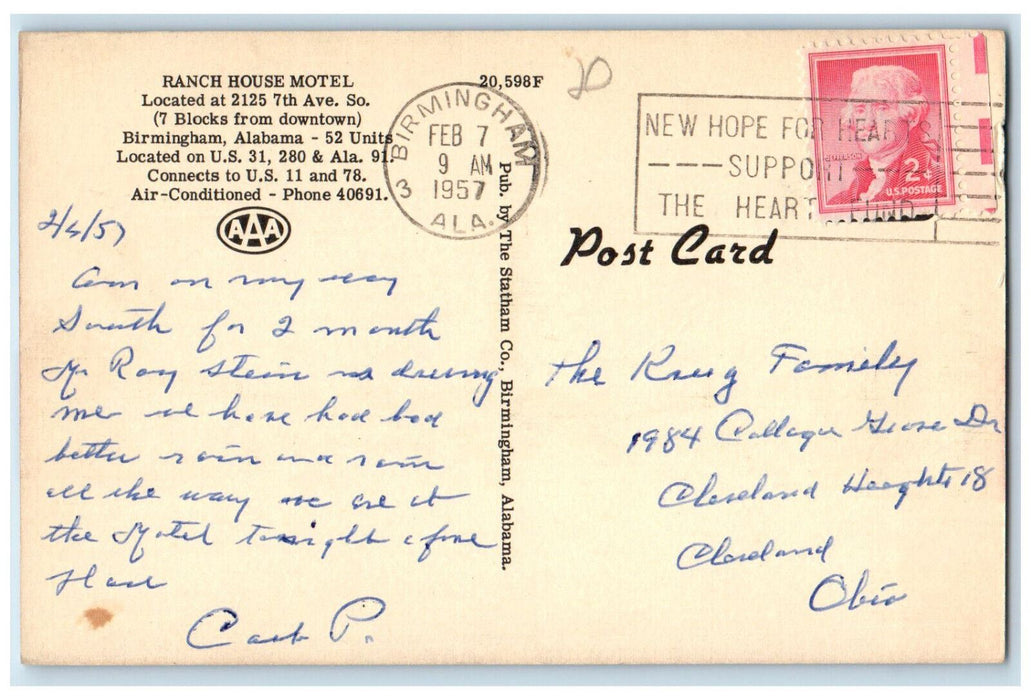 RANCH HOUSE MOTEL
Located at 2125 7th Ave. So.
(7 Blocks from downtown)
Birmingham, Alabama - 52 Units
Located on U.S. 31, 280 & Ala. 91.
Connects to U.S. 11 and 78.
Air-Conditioned - Phone 40691.
AAA
20,598F
BIRMINGHAM
FEB 7
9 AM
1957
3 ALA.
NEW HOPE FOR HEARTS
SUPPORT
THE HEART FUND
JEFFERSON
2¢
U.S. POSTAGE
Post Card
Pub. by The Statham Co., Birmingham, Alabama.
2/6/57
Am on my way
South for 2 month
Mr Ray Stein is driving
me we have had bad
rain and rain
all the way we are at
the Motel tonight a fine
Place
P.
The Krug Family
1984 College Grove Dr
Cleveland Heights 18
Cleveland
Ohio